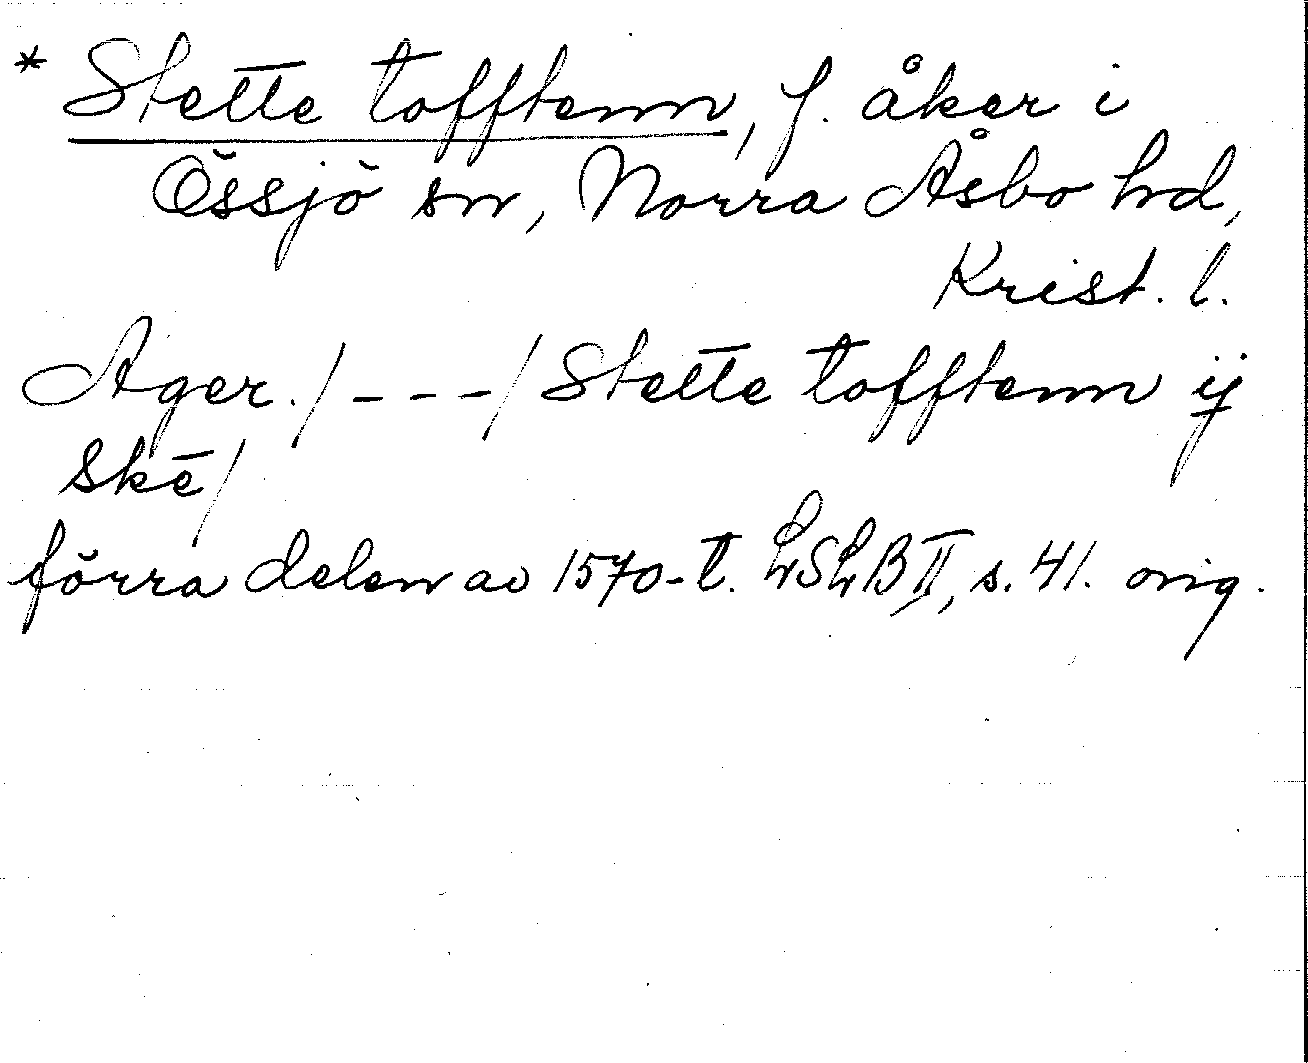 * Stette tofftenn, f. åker i
Össjö sn, Norra Åsbo hd,
Krist. l.
Ager./---/ Stette tofftenn ij
skē/
förra delen av 1570-t. LSLB II, s. 41. orig.